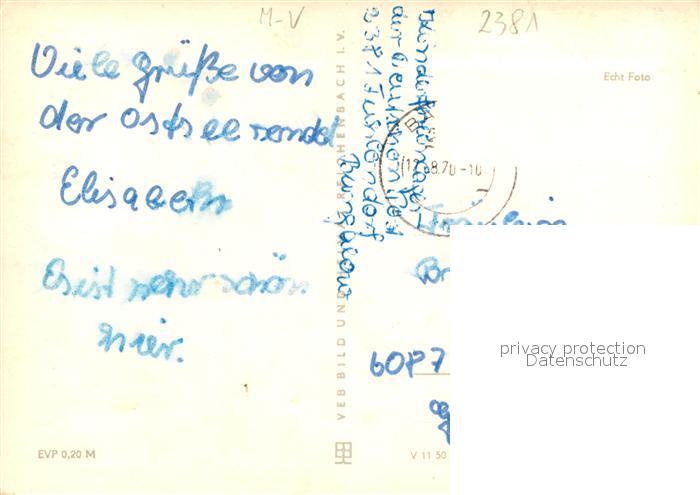 M-V
2381
Viele Grüße von
der Ostsee sendet
Elisabeth
Es ist sehr schön
hier.
VEB BILD UND HEIMAT REICHENBACH I.V.
2381 Fuhlendorf
Echt Foto
12.8.70-10
Fräulein
Br
6087
privacy protection
Datenschutz
EVP 0,20 M
V 11 50